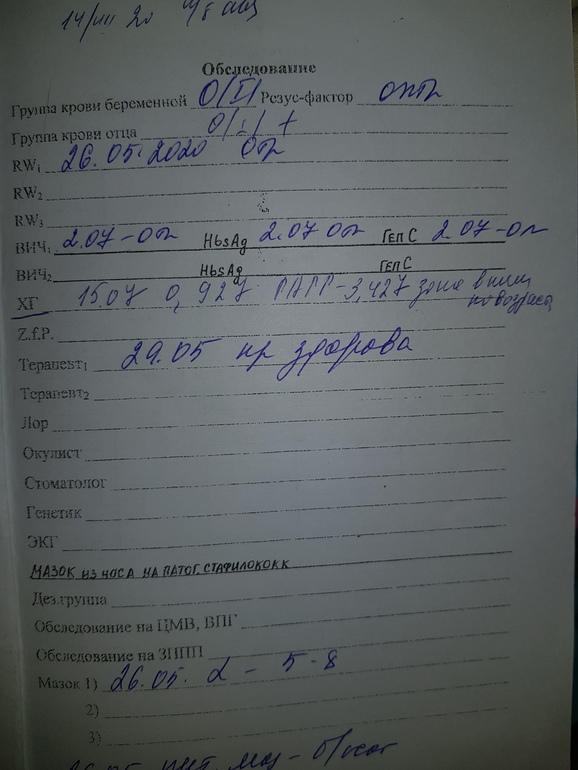 14/III 20
Обследование
Группа крови беременной O(I) Резус-фактор отр
Группа крови отца O(I) +
RW1 26.05.2020 отр
RW2
RW3
ВИЧ1 2.07-отр HbsAg 2.07 отр Геп С 2.07-отр
ВИЧ2 HbsAg Геп С
ХГ 15.07 0,927 PAPP-3,427 зона
по возраста
Z.f.P.
Терапевт1 29.05 пр здорова
Терапевт2
Лор
Окулист
Стоматолог
Генетик
ЭКГ
МАЗОК ИЗ НОСА НА ПАТОГ. СТАФИЛОКОКК
Дез.группа
Обследование на ЦМВ, ВПГ
Обследование на ЗППП
Мазок 1) 26.05. L - 5-8
2)
3)